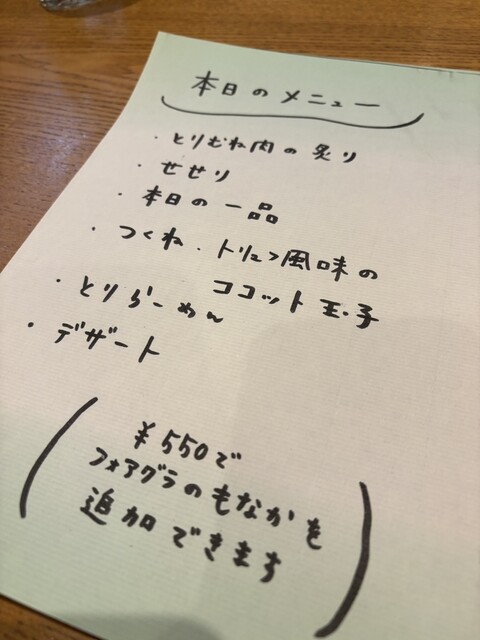 本日のメニュー
・とりむね肉の炙り
・せせり
・本日の一品
・つくね・トリュフ風味の
ココット玉子
・とりらーめん
・デザート
(¥550で
フォアグラのもなかを
追加できます)